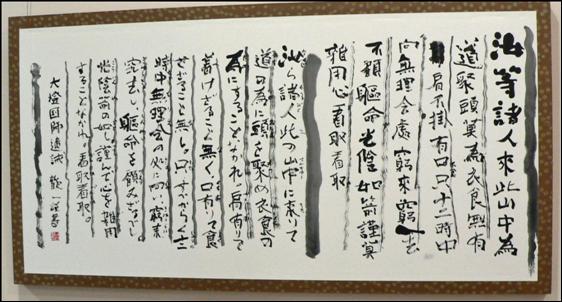 汝等諸人来此山中為
道聚頭莫為衣食無有
肩不掛有口只十二時中
向無理会處窮来窮去
不顧軀命光陰如箭謹莫
雑用心看取看取
汝ら諸人此の山中に来りて
道の為に頭を聚め衣食の
為にすることなかれ。肩有りて
着けざること無く口有りて食
せざること無し。只すべからく十二
時中無理会の処に向い窮来
窮去し、軀命を顧み
光陰箭の如し謹んで心を雑用
することなかれ。看取看取。
大燈国師遺誡